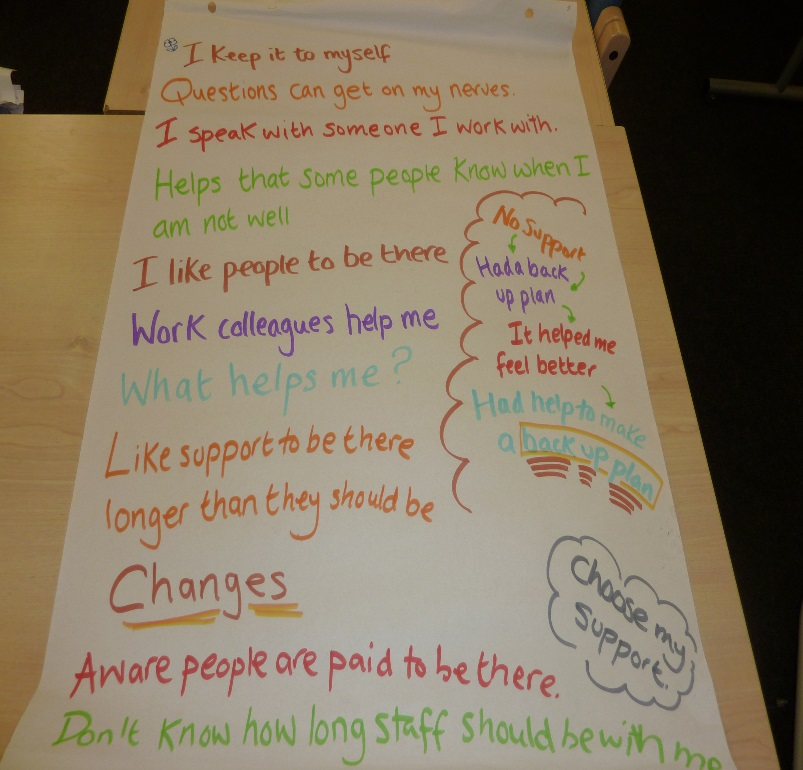 I Keep it to myself
Questions can get on my nerves.
I speak with someone I work with.
Helps that some people know when I
am not well
I like people to be there
Work colleagues help me
What helps me?
Like support to be there
longer than they should be
No support
Had a back
up plan
It helped me
feel better
Had help to make
a back up plan
Changes
Choose my
support.
Aware people are paid to be there.
Don't know how long staff should be with me